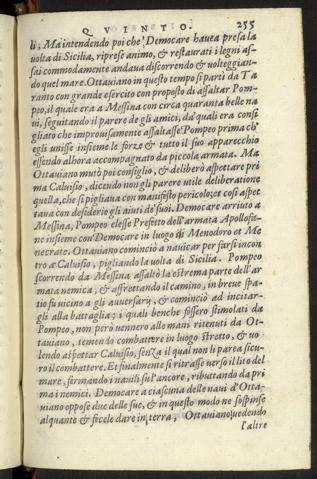 QVINTO. 255
li, Ma intendendo poi che' Democare hauea presa la
uolta di Sicilia, riprese animo, & restaurati i legni as-
sai commodamente andaua discorrendo & uolteggian-
do quel mare. Ottauiano in questo tempo si partì da Ta
ranto con grande esercito con proposito di assaltar Pom-
peo, il quale era a Messina con circa quaranta belle na
ui, seguitando il parere de gli amici, da' quali era consi
gliato che improuisamente assaltasse' Pompeo prima ch'
egli unisse insieme le forze & tutto il suo apparecchio
essendo alhora accompagnato da piccola armata. Ma
Ottauiano mutò poi consiglio, & deliberò aspettare pri
ma Caluisio, dicendo non gli parere utile deliberatione
quella, che si pigliaua con manifesto pericolo; et così aspet
taua con desiderio gli aiuti de' suoi. Democare arriuto a
Messina, Pompeo elesse Prefetto dell'armata Apollofa-
ne insieme con' Democare in luogo di Menodoro et Me
necrate. Ottauiano cominciò a nauicar per farsi incon
tro a' Caluisio, pigliando la uolta di Sicilia. Pompeo
scorrendo da Messina assaltò la estrema parte dell'ar
mata nemica; & affrettando il camino, in breue spa-
tio fu uicino a gli auuersarij, & cominciò ad incitar-
gli alla battaglia; i quali benche fossero stimolati da
Pompeo, non però uennero alle mani ritenuti da Ot-
tauiano, temendo combattere in luogo stretto, & uo-
lendo aspettar Caluisio, senza il qual non li parea sicu-
ro il combattere. Et finalmente si ritrasse uerso il lito del
mare, fermando i nauili su l'ancore, ributtando da pri
ma i nemici. Democare a ciascuna delle naui d'Otta-
uiano oppose due delle sue, & in questo modo ne sospinse
alquante & fecele dare in terra, Ottauiano uedendo
l'altre